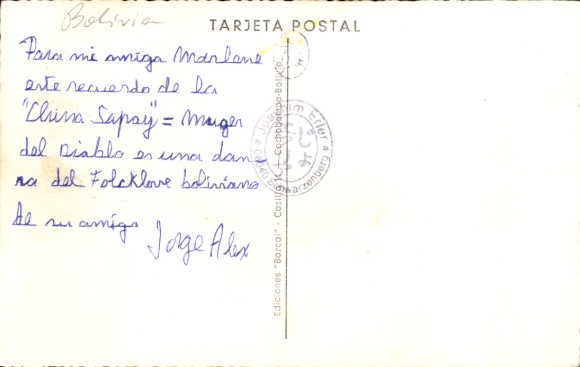 Bolivia
TARJETA POSTAL
Para mi amiga Marlene
este recuerdo de la
"China Sapay" = Muger
del Diablo es una dan
za del Folcklore boliviano
de su amigo
Jorge Alex
Ediciones "Bazcar" - Casilla - Cochabamba-Bolivia
Joachim Erler